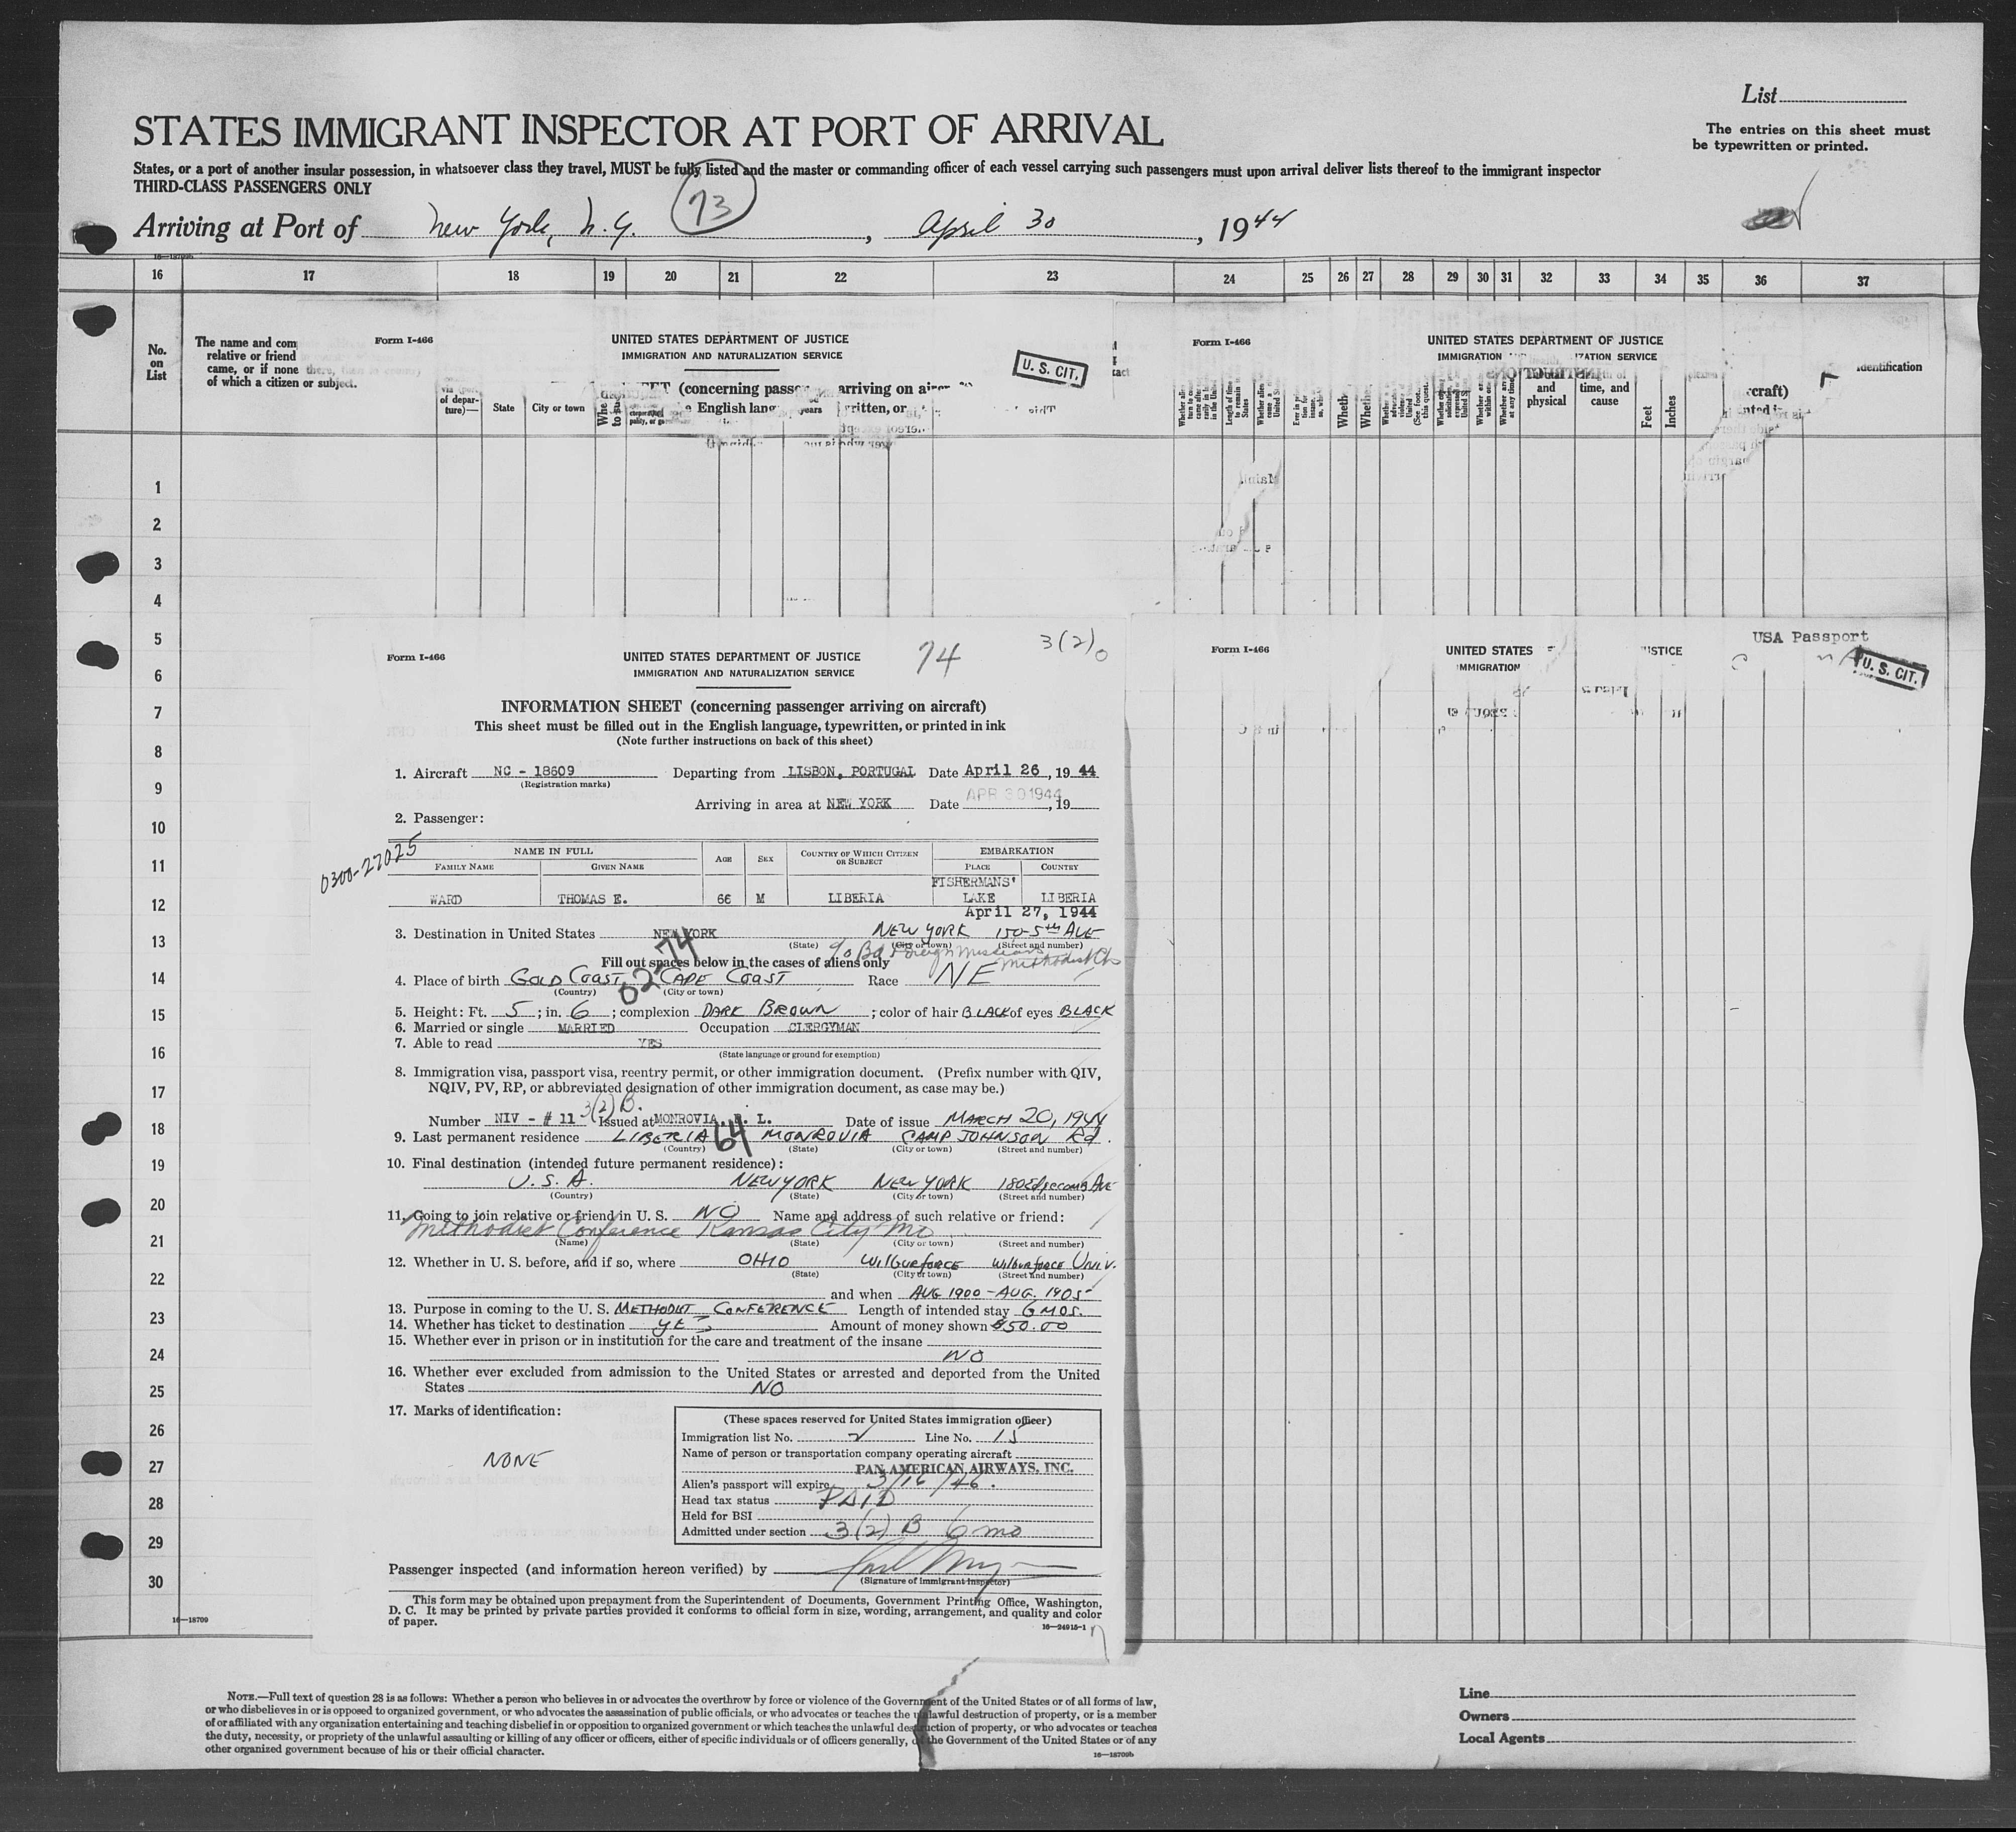 List
STATES IMMIGRANT INSPECTOR AT PORT OF ARRIVAL
The entries on this sheet must
be typewritten or printed.
States, or a port of another insular possession, in whatsoever class they travel, MUST be fully listed and the master or commanding officer of each vessel carrying such passengers must upon arrival deliver lists thereof to the immigrant inspector
THIRD-CLASS PASSENGERS ONLY
73
Arriving at Port of New York, N.Y. , April 30 , 1944
16 17 18 19 20 21 22 23 24 25 26 27 28 29 30 31 32 33 34 35 36 37
No. on List
The name and com
relative or friend
came, or if none there,
of which a citizen or subject.
Form I-466
UNITED STATES DEPARTMENT OF JUSTICE
IMMIGRATION AND NATURALIZATION SERVICE
U. S. CIT.
(concerning passe arriving on
English lang years written, or
of depar-
ture)—
State
City or town
Form I-466
UNITED STATES DEPARTMENT OF JUSTICE
IMMIGRATION IZATION SERVICE
and
physical
time, and
cause
Feet
Inches
rcraft)
identification
1
2
3
4
5
6
7
8
9
10
11
12
13
14
15
16
17
18
19
20
21
22
23
24
25
26
27
28
29
30
16—18709
Form I-466
UNITED STATES DEPARTMENT OF JUSTICE
IMMIGRATION AND NATURALIZATION SERVICE
74
3(2)
INFORMATION SHEET (concerning passenger arriving on aircraft)
This sheet must be filled out in the English language, typewritten, or printed in ink
(Note further instructions on back of this sheet)
1. Aircraft NC - 18609 Departing from LISBON, PORTUGAL Date April 26, 1944
(Registration marks)
Arriving in area at NEW YORK Date APR 30 1944, 19
2. Passenger:
0300-27025
NAME IN FULL AGE SEX COUNTRY OF WHICH CITIZEN OR SUBJECT EMBARKATION
FAMILY NAME GIVEN NAME PLACE COUNTRY
WARD THOMAS E. 66 M LIBERIA FISHERMANS' LAKE LIBERIA
April 27, 1944
3. Destination in United States NEW YORK NEW YORK 150-5th AVE
(State) (City or town) (Street and number)
c/o Bd Foreign Missions Methodist Ch
02-74
Fill out spaces below in the cases of aliens only
4. Place of birth GOLD COAST, CAPE COAST Race NE
(Country) (City or town)
5. Height: Ft. 5; in. 6; complexion DARK BROWN; color of hair BLACK of eyes BLACK
6. Married or single MARRIED Occupation CLERGYMAN
7. Able to read YES
(State language or ground for exemption)
8. Immigration visa, passport visa, reentry permit, or other immigration document. (Prefix number with QIV,
NQIV, PV, RP, or abbreviated designation of other immigration document, as case may be.)
3(2) B.
Number NIV - # 11 Issued at MONROVIA, R. L. Date of issue MARCH 20, 1944
9. Last permanent residence LIBERIA 64 MONROVIA CAMP JOHNSON Rd.
(Country) (State) (City or town) (Street and number)
10. Final destination (intended future permanent residence):
U. S. A. NEW YORK NEW YORK 180 Edgecomb Ave
(Country) (State) (City or town) (Street and number)
11. Going to join relative or friend in U. S. NO Name and address of such relative or friend:
Methodist Conference Kansas City Mo
(Name) (State) (City or town) (Street and number)
12. Whether in U. S. before, and if so, where OHIO Wilburforce Wilburforce Univ.
(State) (City or town) (Street and number)
and when AUG 1900 - AUG. 1905
13. Purpose in coming to the U. S. METHODIST CONFERENCE Length of intended stay 6 MOS.
14. Whether has ticket to destination YES Amount of money shown $50.00
15. Whether ever in prison or in institution for the care and treatment of the insane
NO
16. Whether ever excluded from admission to the United States or arrested and deported from the United
States NO
17. Marks of identification:
NONE
(These spaces reserved for United States immigration officer)
Immigration list No. 2 Line No. 15
Name of person or transportation company operating aircraft
PAN AMERICAN AIRWAYS, INC.
Alien's passport will expire 3/16/46.
Head tax status PAID
Held for BSI
Admitted under section 3(2) B 6 mo
Passenger inspected (and information hereon verified) by
(Signature of immigrant inspector)
This form may be obtained upon prepayment from the Superintendent of Documents, Government Printing Office, Washington,
D. C. It may be printed by private parties provided it conforms to official form in size, wording, arrangement, and quality and color
of paper.
16—24915-1
Form I-466
UNITED STATES
JUSTICE
IMMIGRATION
USA Passport
U. S. CIT.
NOTE.—Full text of question 28 is as follows: Whether a person who believes in or advocates the overthrow by force or violence of the Government of the United States or of all forms of law,
or who disbelieves in or is opposed to organized government, or who advocates the assassination of public officials, or who advocates or teaches the unlawful destruction of property, or is a member
of or affiliated with any organization entertaining and teaching disbelief in or opposition to organized government or which teaches the unlawful destruction of property, or who advocates or teaches
the duty, necessity, or propriety of the unlawful assaulting or killing of any officer or officers, either of specific individuals or of officers generally, of the Government of the United States or of any
other organized government because of his or their official character.
16—18709b
Line
Owners
Local Agents